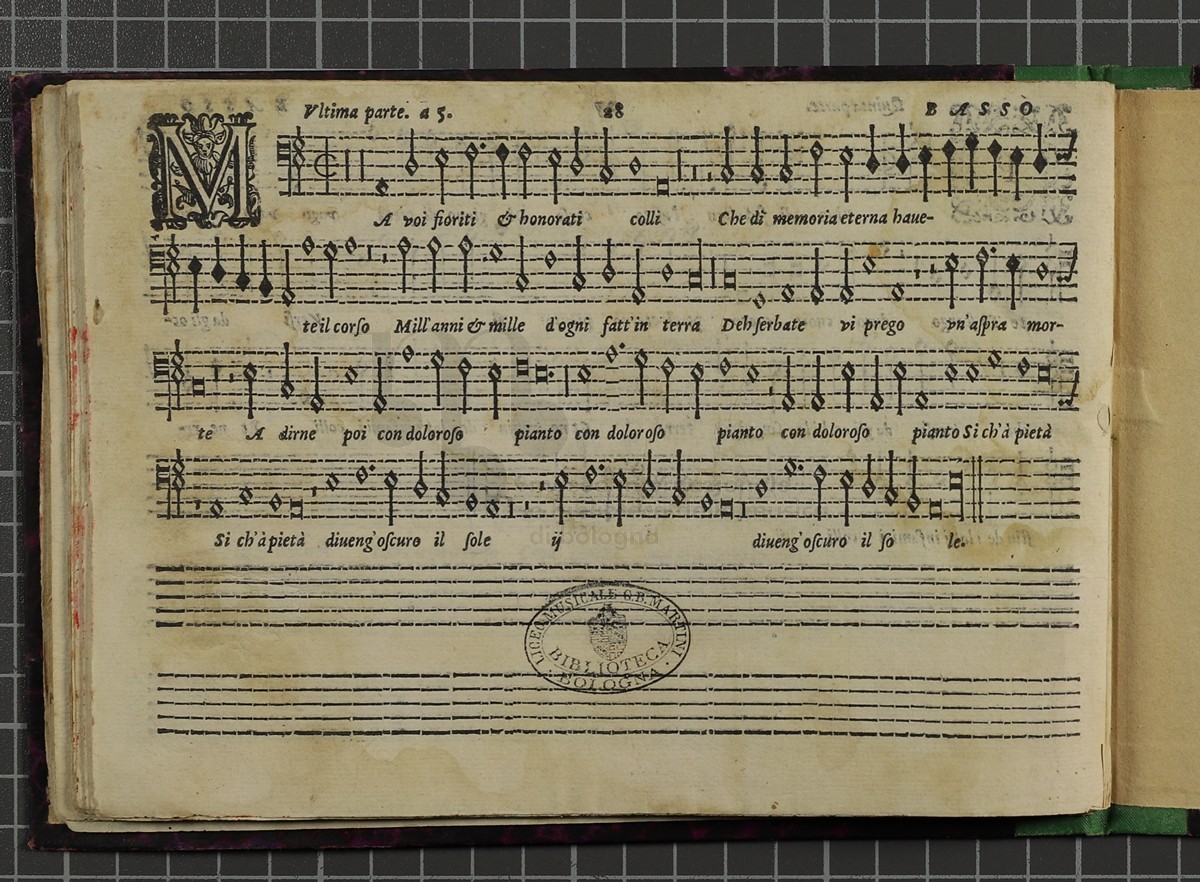 Vltima parte. a 5. 28 BASSO
MA voi fioriti & honorati colli Che di memoria eterna haue-
te il corso Mill'anni & mille d'ogni fatt'in terra Deh serbate vi prego vn'aspra mor-
te A dirne poi con doloroso pianto con doloroso pianto con doloroso pianto Si ch'à pietà
Si ch'à pietà diueng'oscuro il sole ij diueng'oscuro il so le.
LICEO MUSICALE G.B. MARTINI
BIBLIOTECA
BOLOGNA